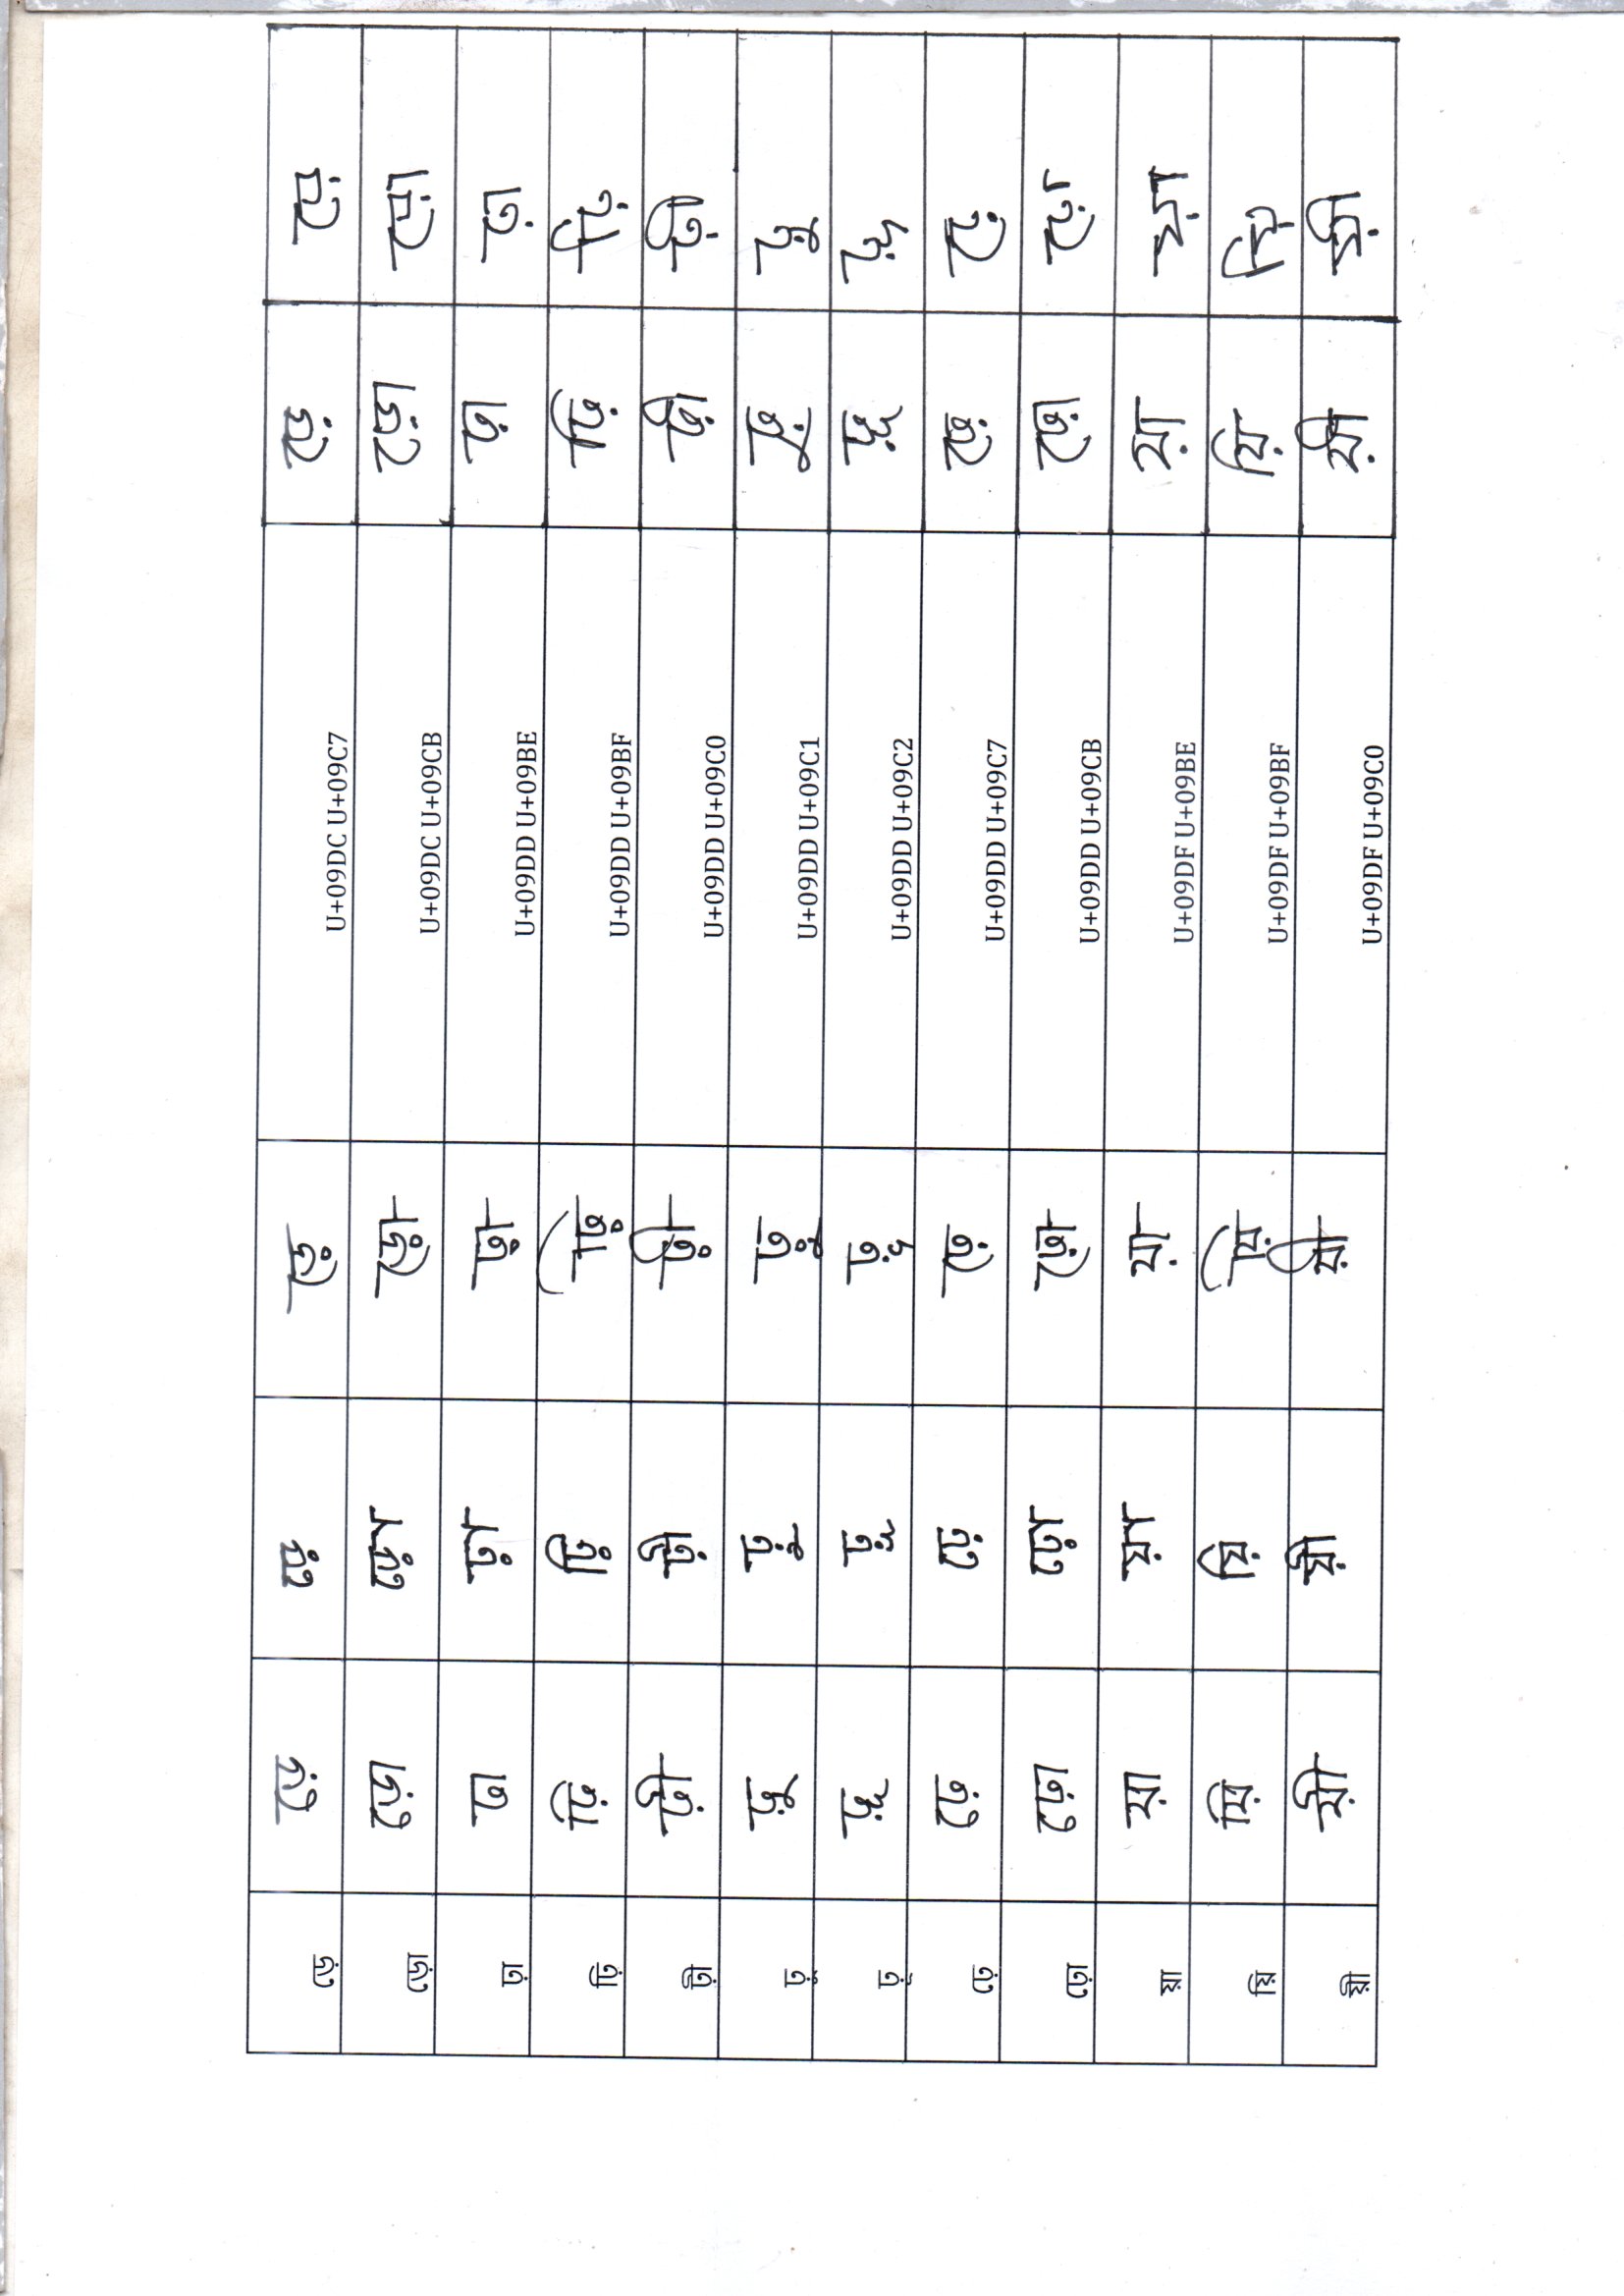 ড়ে ড়ে ড়ে ড়ে U+09DC U+09C7 ড়ে ড়ে
ড়ো ড়ো ড়ো ড়ো U+09DC U+09CB ড়ো ড়ো
ঢ়া ঢা ঢ়া ঢ়া U+09DD U+09BE ঢ়া ঢ়া
ঢ়ি ঢ়ি ঢ়ি ঢ়ি U+09DD U+09BF ঢ়ি ঢ়ি
ঢ়ী ঢ়ী ঢ়ী ঢ়ী U+09DD U+09C0 ঢ়ী ঢ়ী
ঢ়ু ঢ়ু ঢ়ু ঢ়ু U+09DD U+09C1 ঢ়ু ঢ়ু
ঢ়ূ ঢ়ূ ঢ়ূ ঢ়ূ U+09DD U+09C2 ঢ়ূ ঢ়ূ
ঢ়ে ঢ়ে ঢ়ে ঢ়ে U+09DD U+09C7 ঢ়ে ঢ়ে
ঢ়ো ঢ়ো ঢ়ো ঢ়ো U+09DD U+09CB ঢ়ো ঢ়ো
য়া য়া য়া য়া U+09DF U+09BE য়া য়া
য়ি য়ি য়ি য়ি U+09DF U+09BF য়ি য়ি
য়ী য়ী য়ী য়ী U+09DF U+09C0 য়ী য়ী